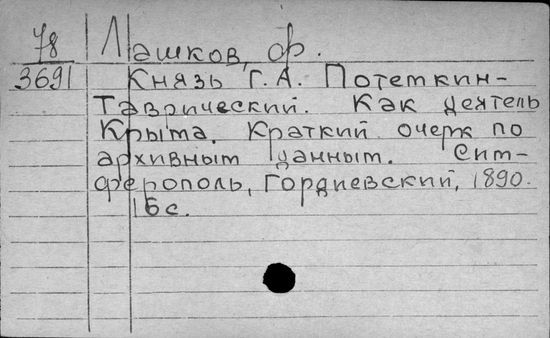 78 Лашков, Ф.
3691 Князь Г. А. Потемкин-
Таврический. Как деятель
Крыма. Краткий очерк по
архивным данным. Сим-
ферополь, Гордиевский, 1890.
16 с.